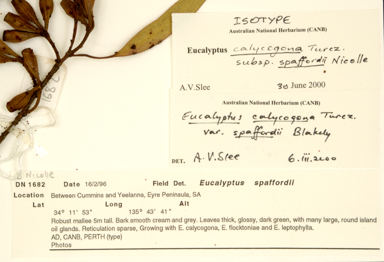 ISOTYPE
Australian National Herbarium (CANB)
Eucalyptus calycogona Turcz.
subsp. spaffordii Nicolle
A.V.Slee 30 June 2000
Australian National Herbarium (CANB)
Eucalyptus calycogona Turcz.
var. spaffordii Blakely
DET. A.V.Slee 6.iii.2000
D Nicolle
DN 1682 Date 16/2/96 Field Det. Eucalyptus spaffordii
Location Between Cummins and Yeelanna, Eyre Peninsula, SA
Lat Long Alt
34° 11' 53" 135° 43' 41"
Robust mallee 5m tall. Bark smooth cream and grey. Leaves thick, glossy, dark green, with many large, round island
oil glands. Reticulation sparse, Growing with E. calycogona, E. flocktoniae and E. leptophylla.
AD, CANB, PERTH (type)
Photos